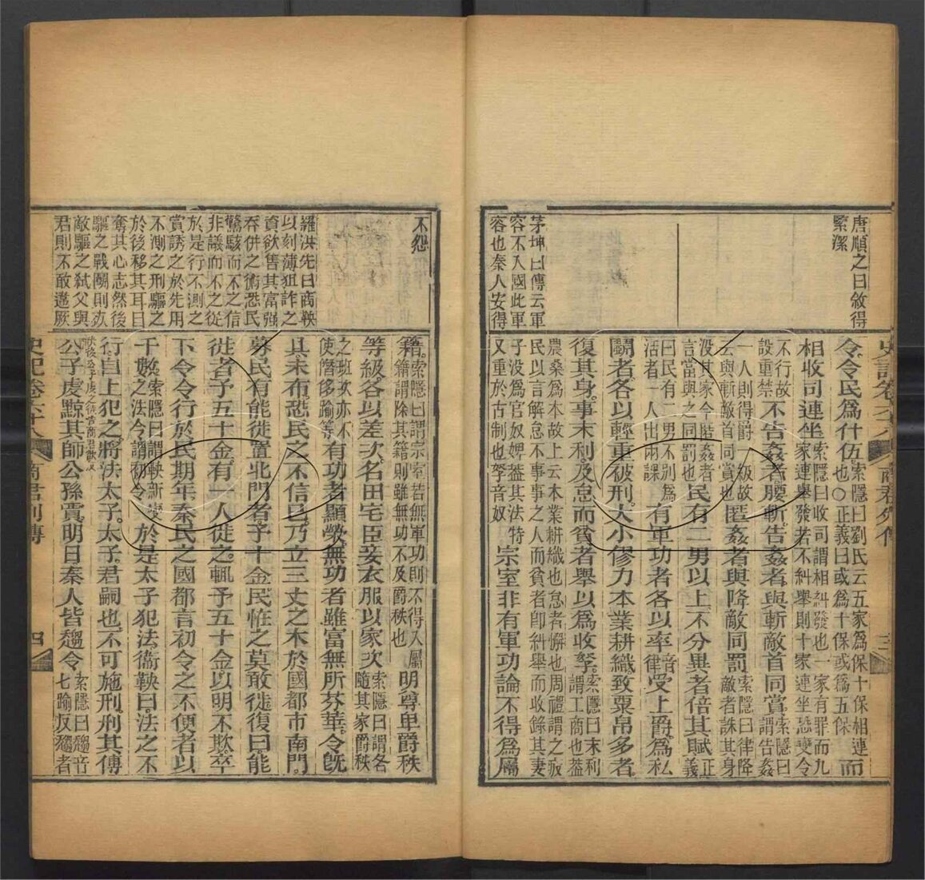 唐順之曰敘得
緊潔
茅坤曰傳云軍
容不入國此軍
容也秦人安得
令令民爲什伍索隱曰劉氏云五家爲保十保相連也○正義曰或爲十保或爲五保而
相收司連坐索隱曰收司謂相糾發也一家有罪而九家連舉發若不糾舉則十家連坐恐變令
不行故設重禁不告姦者腰斬告姦者與斬敵首同賞索隱曰謂告姦
一人則得爵一級故云與斬敵首同賞也匿姦者與降敵同罰索隱曰律降敵者誅其身
没其家今匿姦者言當與之同罰也民有二男以上不分異者倍其賦正義
曰民有二男不別爲活者一人出兩課有軍功者各以率音律受上爵爲私
鬭者各以輕重被刑大小僇力本業耕織致粟帛多者
復其身事末利及怠而貧者舉以爲收孥索隱曰末利謂工商也蓋
農桑爲本故上云本業耕織也怠者懈也周禮謂之疲民以言解怠不事事之人而貧者即糾舉而收錄其妻
子没爲官奴婢蓋其法特又重於古制也孥音奴宗室非有軍功論不得爲屬
史記卷六十八 商君列傳 三
不怨
羅洪先曰商鞅
以刻薄狙詐之
資欲售其富强
吞併之術恐民
驚駭而不之信
非議而不之從
於是行不測之
賞誘之於先用
不測之刑驅之
於後移其耳目
奪其心志然後
驅之戰鬭則效
敵驅之弑父與
君則不敢違厥
籍索隱曰謂宗室若無軍功則不得入屬籍謂除其籍則雖無功不及爵秩也明尊卑爵秩
等級各以差次名田宅臣妾衣服以家次索隱曰謂各隨其家爵秩
之班次亦不使僭侈踰等有功者顯榮無功者雖富無所芬華令旣
具未布恐民之不信已乃立三丈之木於國都市南門
募民有能徙置北門者予十金民怪之莫敢徙復曰能
徙者予五十金有一人徙之輒予五十金以明不欺卒
下令令行於民朞年秦民之國都言初令之不便者以
千數索隱曰謂鞅新變之法令謂初令於是太子犯法衞鞅曰法之不
行自上犯之將法太子太子君嗣也不可施刑刑其傅
公子虔黥其師公孫賈明日秦人皆趨令索隱曰趨音七踰反趨者
史記卷六十八 商君列傳 四